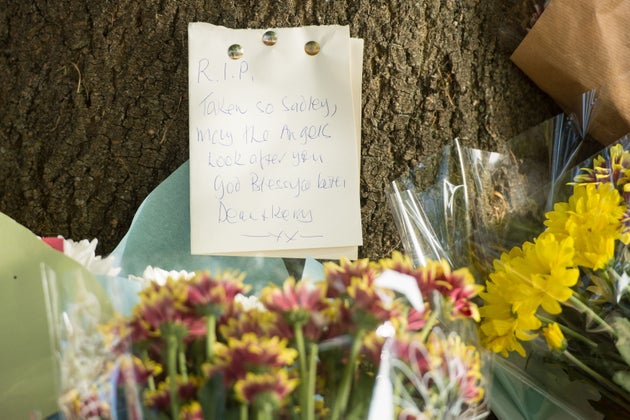 R.I.P.
Taken so Sadley,
may the Angels
Look after you
God Bless you both
Dean & Kerry
xx